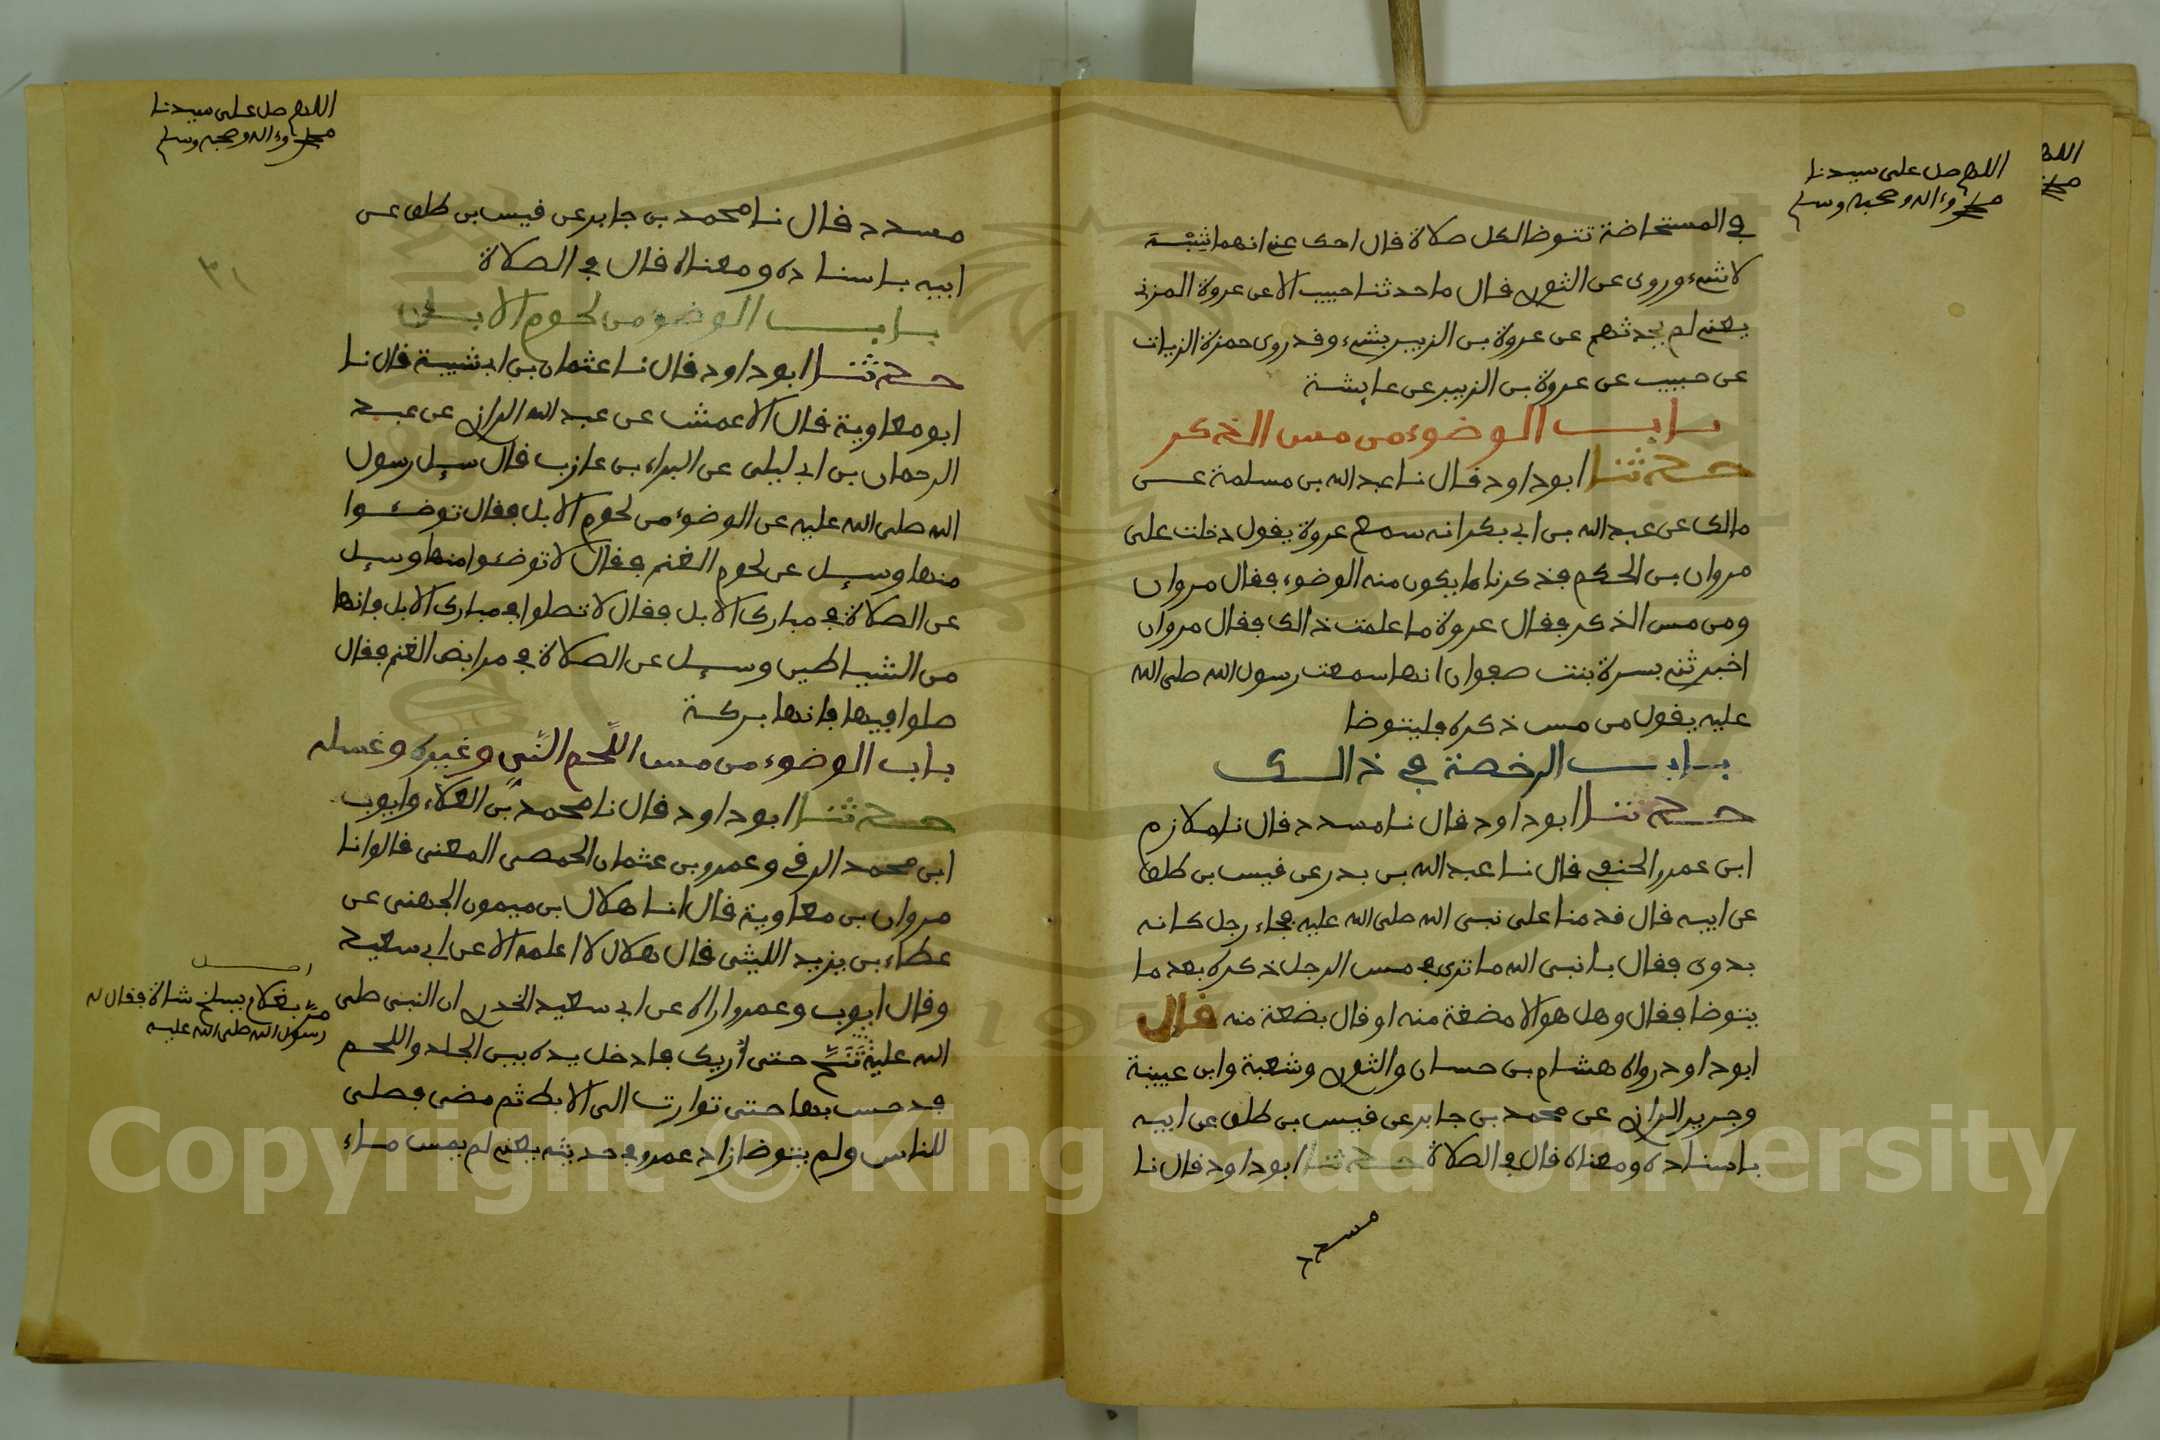 اللهم صل على سيدنا
محمد وءاله وصحبه وسلم
في المستحاضة تتوضا لكل صلاة قال احك عني انهما شبه
لا شيء وروي عن الثوري قال ما حدثنا حبيب الا عن عروة المزني
يعني لم يحدثهم عن عروة بن الزبير بشيء وقد روى حمزة الزيات
عن حبيب عن عروة بن الزبير عن عايشة
باب الوضوء من مس الذكر
حدثنا ابو داود قال نا عبد الله بن مسلمة عن
مالك عن عبد الله بن ابي بكر انه سمع عروة يقول دخلت على
مروان بن الحكم فذكرنا ما يكون منه الوضوء فقال مروان
ومن مس الذكر فقال عروة ما علمت ذالك فقال مروان
اخبرتني بسرة بنت صفوان انها سمعت رسول الله صلى الله
عليه يقول من مس ذكره فليتوضا
باب الرخصة في ذالك
حدثنا ابو داود قال نا مسدد قال نا ملازم
ابن عمرو الحنفي قال نا عبد الله بن بدر عن قيس بن طلق
عن ابيه قال قدمنا على نبي الله صلى الله عليه فجاء رجل كانه
بدوي فقال يا نبي الله ما ترى في مس الرجل ذكره بعد ما
يتوضا فقال وهل هو الا مضغة منه او قال بضعة منه قال
ابو داود رواه هشام بن حسان والثوري وشعبة وابن عيينة
وجرير الرازي عن محمد بن جابر عن قيس بن طلق عن ابيه
باسناده ومعناه قال في الصلاة حدثنا ابو داود قال نا
مسدد
اللهم صل على سيدنا
محمد وءاله وصحبه وسلم
٣١
مسدد قال نا محمد بن جابر عن قيس بن طلق عن
ابيه باسناده ومعناه قال في الصلاة
باب الوضو من لحوم الابل
حدثنا ابو داود قال نا عثمان بن ابي شيبة قال نا
ابو معاوية قال الاعمش عن عبد الله الرازي عن عبد
الرحمان بن ابي ليلى عن البراء بن عازب قال سيل رسول
الله صلى الله عليه عن الوضوء من لحوم الابل فقال توضئوا
منها وسيل عن لحوم الغنم فقال لا توضئوا منها وسيل
عن الصلاة في مبارك الابل فقال لا تصلوا في مبارك الابل فانها
من الشياطين وسيل عن الصلاة في مرابض الغنم فقال
صلوا فيها فانها بركة
باب الوضوء من مس اللحم النيي وغيره وغسله
حدثنا ابو داود قال نا محمد بن العلاء وايوب
ابن محمد الرقي وعمرو بن عثمان الحمصي المعنى قالوا نا
مروان بن معاوية قال انا هلال بن ميمون الجهني عن
عطاء بن يزيد الليثي قال هلال لا اعلمه الا عن ابي سعيد
وقال ايوب وعمرو اراه عن ابي سعيد الخدري ان النبي صلى
الله عليه تنح حتى أريك فادخل يده بين الجلد واللحم
فدحس بها حتى توارت الى الابط ثم مضى فصلى
للناس ولم يتوضا زاد عمرو في حديثه يعني لم يمس ماء
مر بغلام يسلخ شاة فقال له
رسول الله صلى الله عليه
Copyright © King Saud University
1957